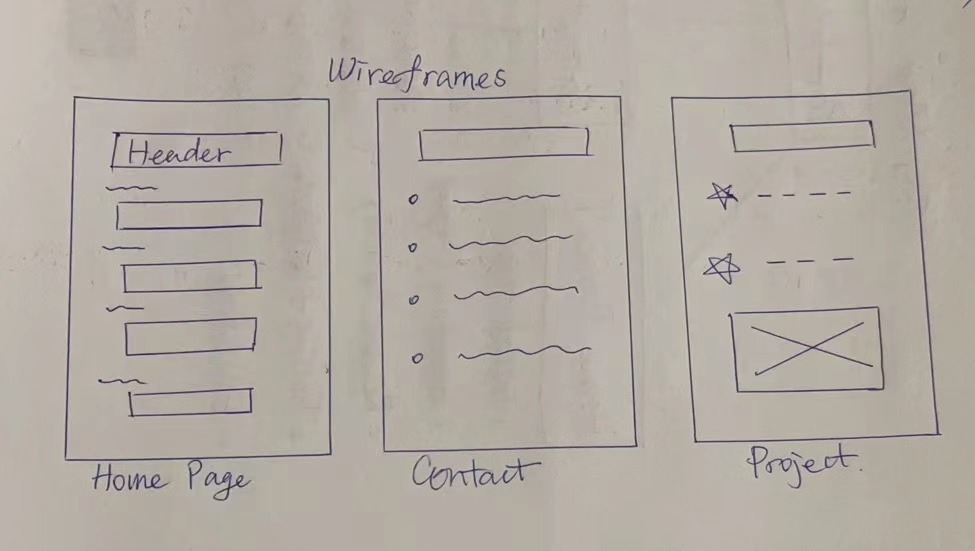 Wireframes
Header
Home Page
Contact
Project.